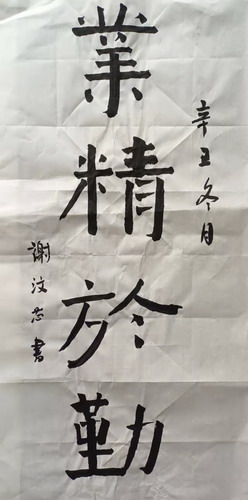 辛丑冬月
業精於勤
謝汶芯書